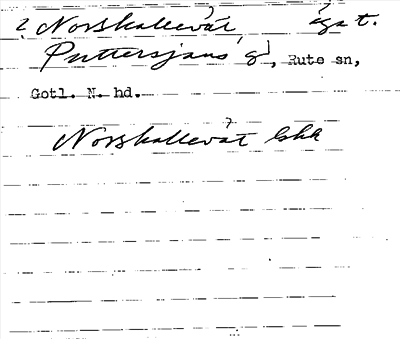 ? Norskallevät, äga t.
Puttersjaus gd, Rute sn,
Gotl. N. hd.
Norskallevät